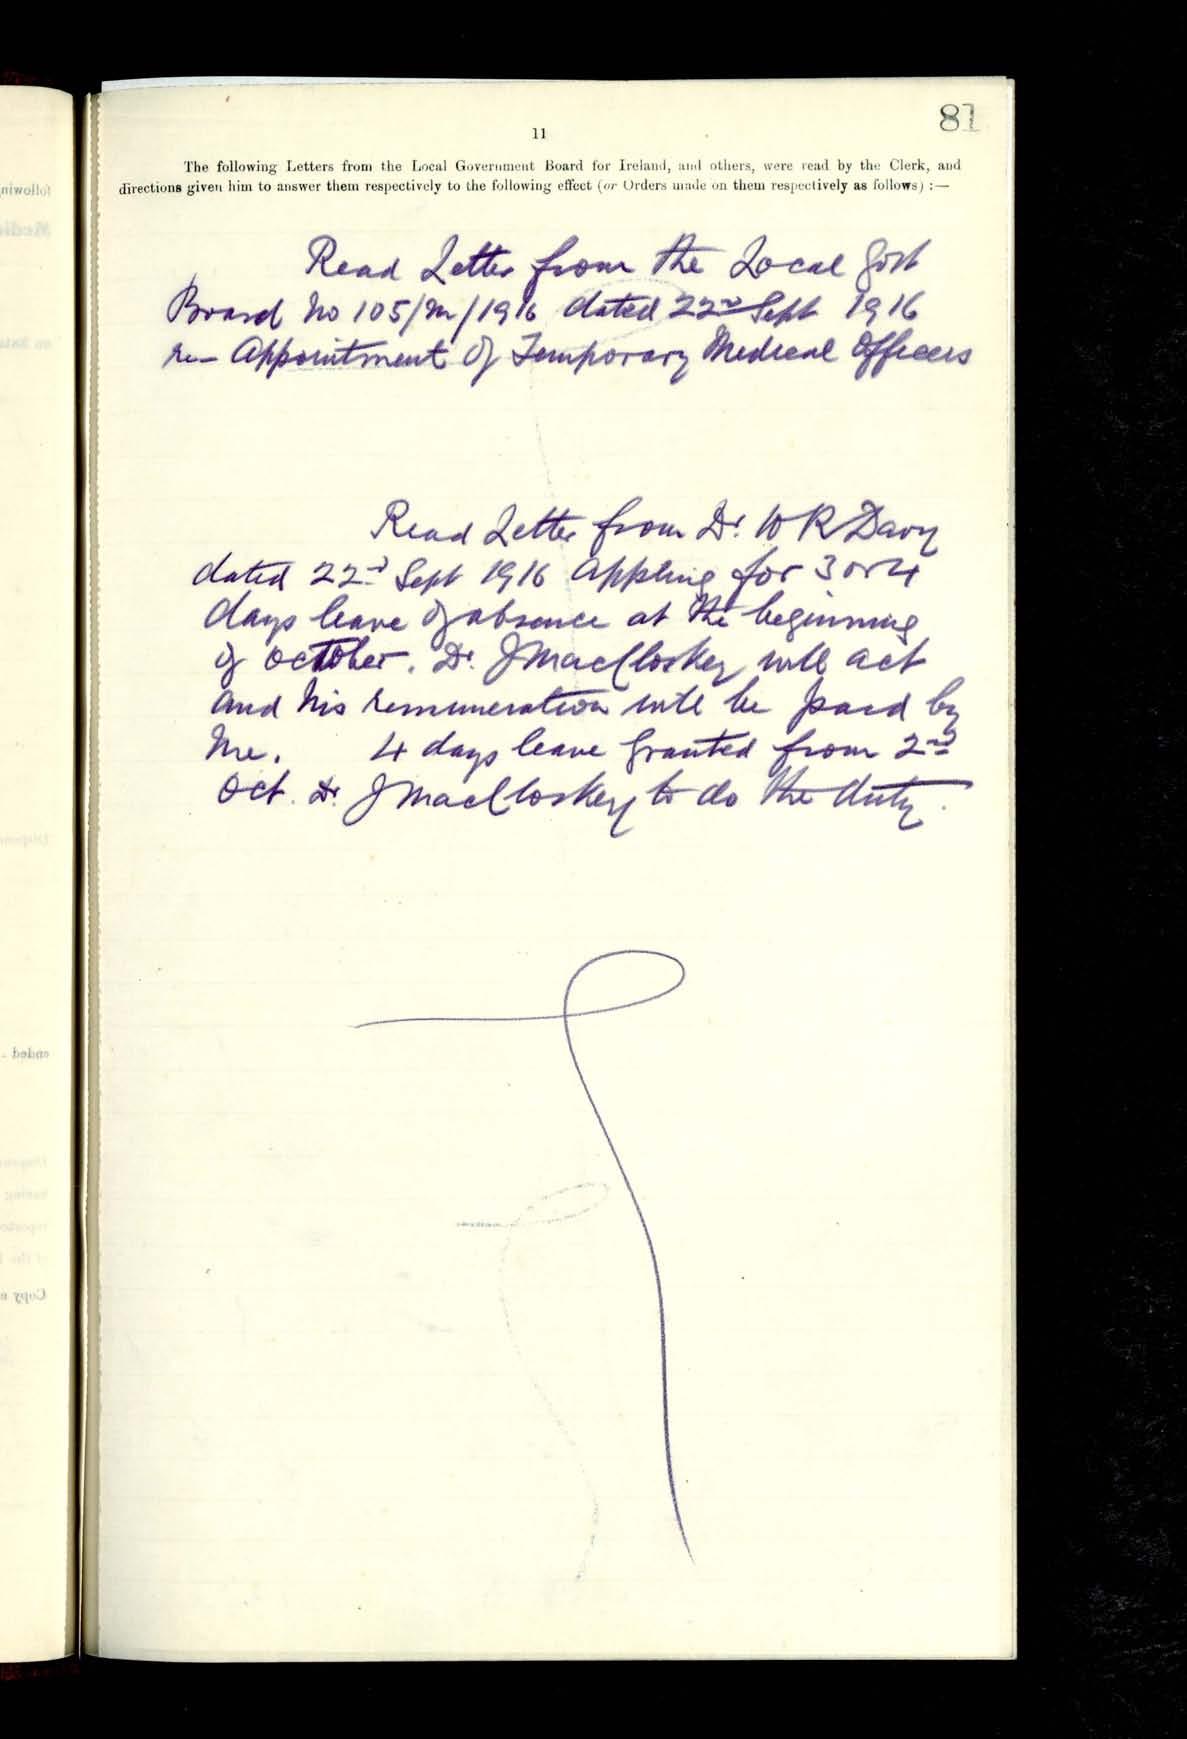 81
11
The following Letters from the Local Government Board for Ireland, and others, were read by the Clerk, and
directions given him to answer them respectively to the following effect (or Orders made on them respectively as follows) :—
Read Letter from the Local Govt
Board No 105/M/1916 dated 22nd Sept 1916
re- Appointment of Temporary Medical Officers
Read Letter from Dr. W R Davy
dated 22nd Sept 1916 appling for 3 or 4
days leave of absence at the beginning
of October. Dr. J MacCloskey will act
and his remuneration will be paid by
Me. 4 days leave granted from 2nd
Oct. Dr. J MacCloskey to do the duty.